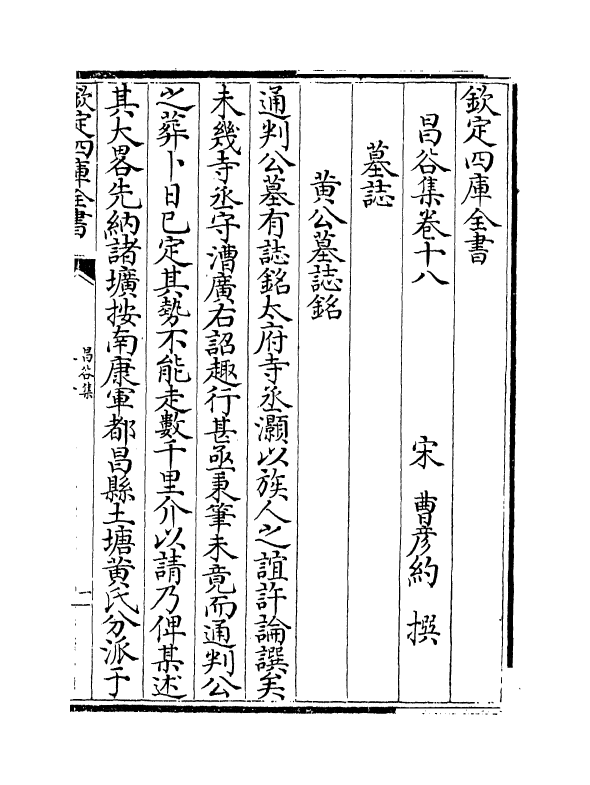 欽定四庫全書
昌谷集卷十八
宋 曹彦約 撰
墓誌
黃公墓誌銘
通判公墓有誌銘太府寺丞灝以族人之誼許論譔矣
未幾寺丞守漕廣右詔趣行甚亟秉筆未竟而通判公
之葬卜日已定其勢不能走數千里介以請乃俾某述
其大畧先納諸壙按南康軍都昌縣土塘黃氏分派于
欽定四庫全書
昌谷集
一